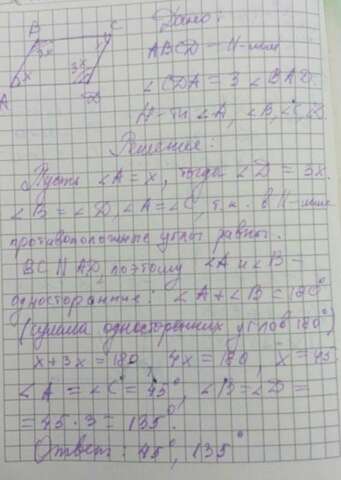 B C
3x
x
3x
A D
Дано:
ABCD - П-мм
∠CDA = 3 ∠BAD.
Н-ти ∠A, ∠B, ∠C, D.
Решение:
Пусть ∠A = x, тогда ∠D = 3x.
∠B = ∠D, ∠A = ∠C, т.к. в П-мме
противоположные углы равны.
BC || AD, поэтому ∠A и ∠B -
односторонние: ∠A + ∠B = 180°
(сумма односторонних углов 180°)
x + 3x = 180, 4x = 180, x = 45
∠A = ∠C = 45°, ∠B = ∠D =
= 45 · 3 = 135°.
Ответ: 45°, 135°